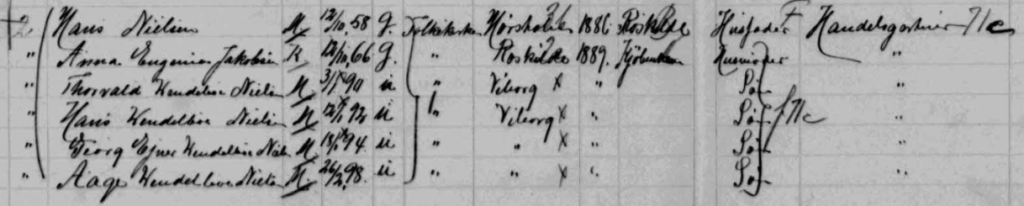 2 Hans Nielsen M 12/10 58 g. Folkekirke Hørsholm 1886 Roskilde Husfader Handelsgartner
" Anna Eugenia Jakobsen K 12/10 66 g. " Roskilde 1889. Kjøbenhavn Husmoder "
" Thorvald Wendelboe Nielsen M 3/1 90 u " Viborg x " Søn "
" Hans Wendelboe Nielsen M 12/ 92 u " Viborg x " Søn "
" Georg Ejner Wendelboe Niels M 13/ 94. u " " x " Søn "
" Aage Wendelboe Niels M 26/2 98. u " " x " Søn "